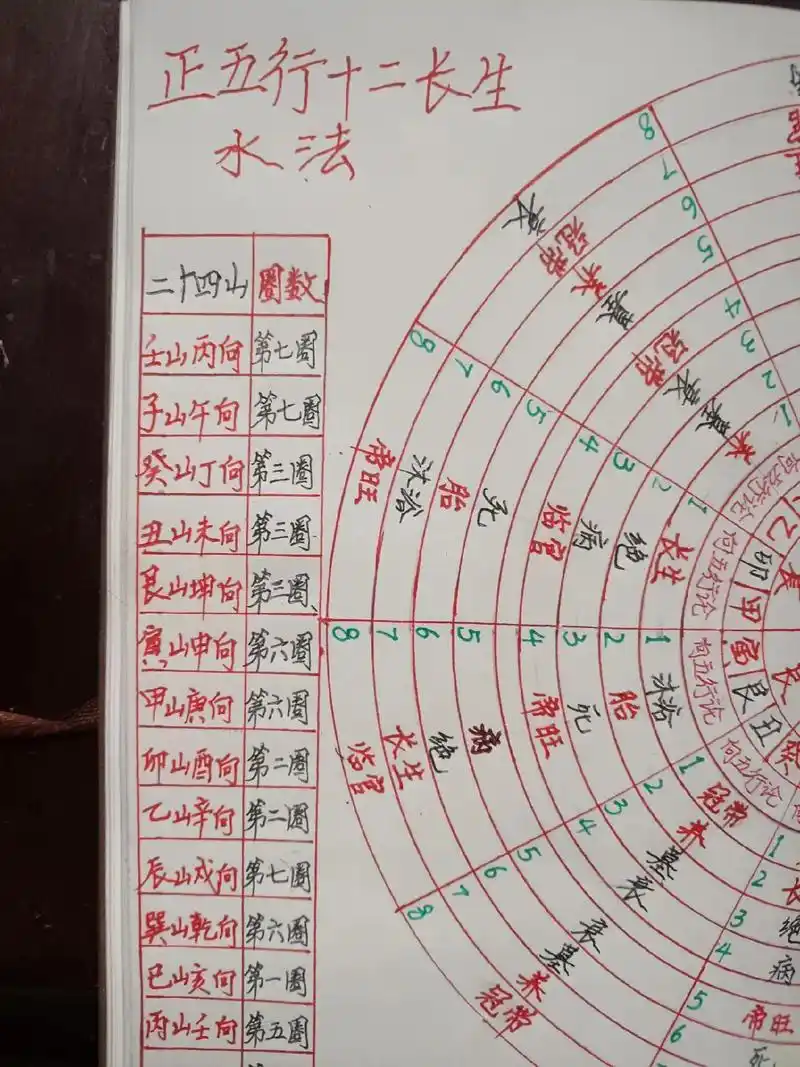 正五行十二长生
水法
二十四山 圈数
壬山丙向 第七圈
子山午向 第七圈
癸山丁向 第三圈
丑山未向 第三圈
艮山坤向 第三圈
寅山申向 第六圈
甲山庚向 第六圈
卯山酉向 第二圈
乙山辛向 第二圈
辰山戍向 第七圈
巽山乾向 第六圈
巳山亥向 第一圈
丙山壬向 第五圈
8 7 6 5 4 3 2 1
衰 冠带 养 墓 冠带 衰 墓 养
向五行论
8 7 6 5 4 3 2 1
帝旺 沐浴 胎 死 临官 病 绝 长生
向五行论
8 7 6 5 4 3 2 1
临官 长生 绝 病 帝旺 死 胎 沐浴
向五行论
8 7 6 5 4 3 2 1
冠带 养 墓 衰 衰 墓 养 冠带
向五行论
1
2 长
3 绝
4 病
5 帝旺
6 死
乙
卯
甲
寅
艮
丑
癸
艮